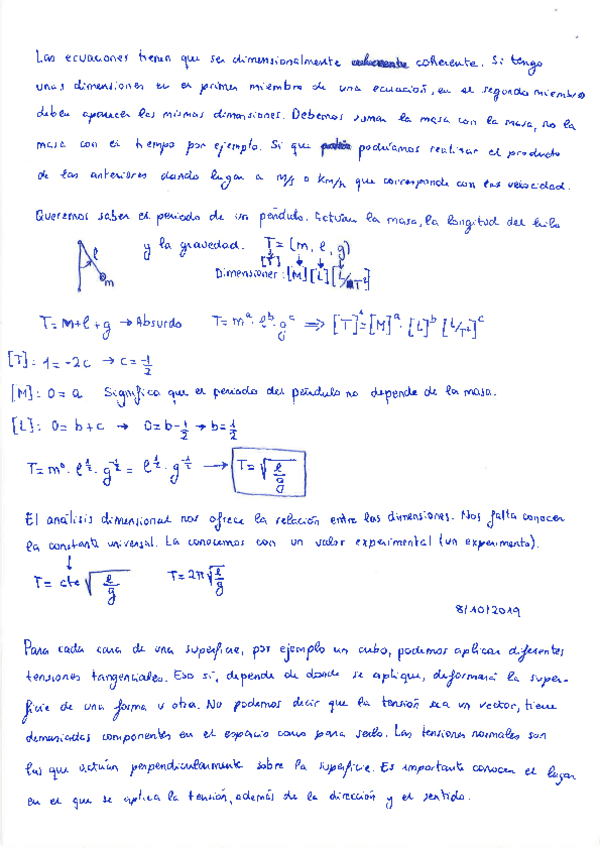 Las ecuaciones tienen que ser dimensionalmente coherente. Si tengo
unas dimensiones en el primer miembro de una ecuación, en el segundo miembro
deben aparecer las mismas dimensiones. Debemos sumar la masa con la masa, no la
masa con el tiempo por ejemplo. Si que podríamos realizar el producto
de las anteriores dando lugar a m/s o km/h que corresponde con las velocidad.
Queremos saber el periodo de un péndulo. Actúan la masa, la longitud del hilo
y la gravedad. T = (m, l, g)
l
m
[T]
Dimensiones: [M] [L] [L/T²]
T = m + l + g → Absurdo T = m^a · l^b · g^c ⇒ [T]^1 = [M]^a · [L]^b [L/T²]^c
[T]: 1 = -2c → c = -1/2
[M]: 0 = a Significa que el periodo del péndulo no depende de la masa.
[L]: 0 = b + c → 0 = b - 1/2 → b = 1/2
T = m^0 · l^1/2 · g^-1/2 = l^1/2 · g^-1/2 → T = √(l/g)
El análisis dimensional nos ofrece la relación entre las dimensiones. Nos falta conocer
la constante universal. La conocemos con un valor experimental (un experimento).
↓
T = cte √(l/g) T = 2π √(l/g)
8/10/2019
Para cada cara de una superficie, por ejemplo un cubo, podemos aplicar diferentes
tensiones tangenciales. Eso si, depende de donde se aplique, deformará la super-
ficie de una forma u otra. No podemos decir que la tensión sea un vector, tiene
demasiadas componentes en el espacio como para serlo. Las tensiones normales son
las que actúan perpendicularmente sobre la superficie. Es importante conocer el lugar
en el que se aplica la tensión, además de la dirección y el sentido.